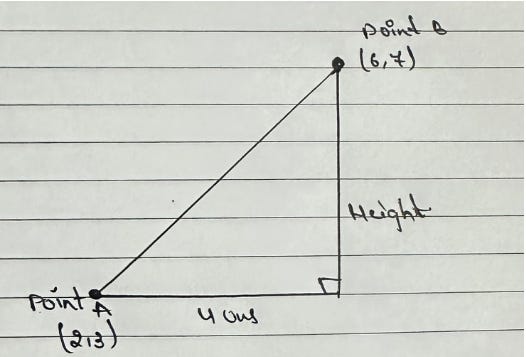 Point B
(6,7)
Height
Point A
4 cms
(2,3)